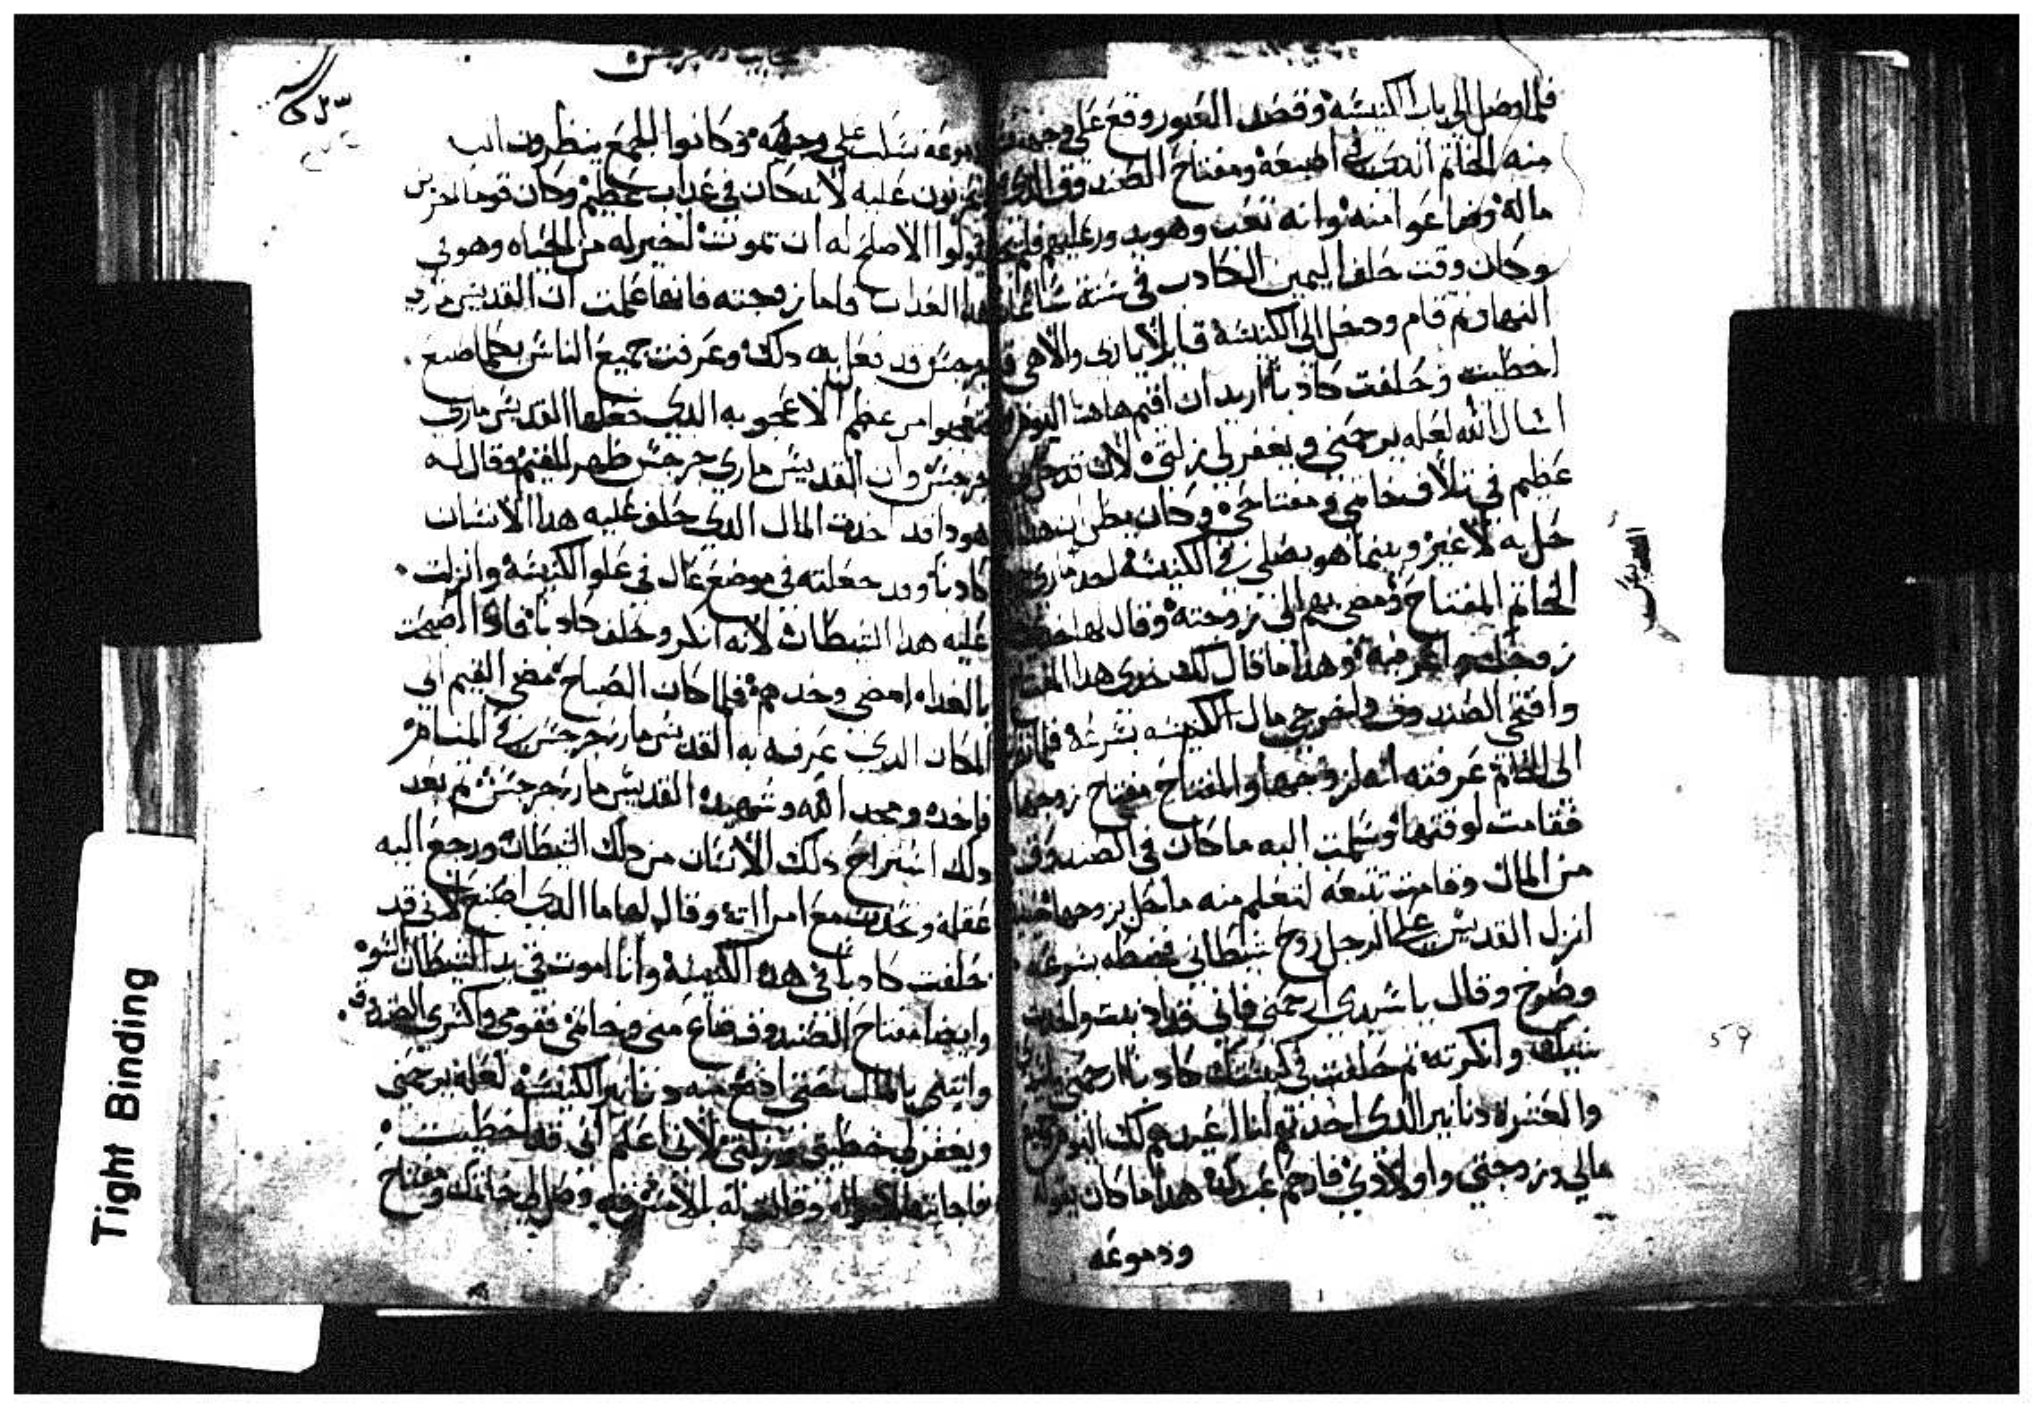 فلما وصل الى باب الكنيسة وقصد العبور وقع على وجهه
منه الخاتم الذي في اصبعه ومفتاح الصندوق الذي
ماله وضاعوا منه وانه تعب وهو يدور عليهم فلم يجد
وكان وقت حلف اليمين الكادب في ستة ساعات
النهار ثم قام ودخل الى الكنيسة قايلا يا ربي والاهي
اخطيت وحلفت كادبا اريد ان اقيم هاهنا اليوم
اسال الله لعله يرحمني ويغفر لي زلتي لان
عظيم في تلاف خاتمي ومفتاحي وكان يظن ان هذا
حل به لا غير وبينما هو يصلي في الكنيسة اخد ماري
الخاتم المفتاح ومضى بهم الى زوجته وقال لها
زوجك وهذا ما قال لك خدي هذا المفتاح
وافتحي الصندوق واخرجي مال الكنيسه بسرعه فلما
الى الخاتم عرفته انه لزوجها والمفتاح مفتاح زوجها
فقامت لوقتها وسلمت اليه ما كان في الصندوق
من المال وقامت تتبعه لتعلم منه ما حل بزوجها
انزل القديس على الرجل روح شيطاني بسرعه
وصرخ وقال يا سيدي ارحمني فاني
وانكرته ثم حلفت في كنيستك كادبا ارحمني
والعشرة دنانير الذي اخدتهم انا لك اليوم
مالي وزوجتي واولادي فارحم عبدك هذا ما كان يقوله
ودموعه
ودموعه تسيل على وجهه وكانوا الجمع ينظرون اليه
عليه لانه كان في عذاب عظيم وكان قوما اخرين
يقولوا الاصلح له ان يموت اخير له من الحياه وهو في
هذا العذاب فاما زوجته فانها علمت ان القديس ماري
جرجس قد فعل به ذلك وعرفت جميع الناس بكلما صنع
من عظم الاعجوبه الذي فعلها القديس ماري
جرجس وان القديس ماري جرجس ظهر للقيم وقال له
هودا قد اخدت المال الذي حلف عليه هذا الانسان
كادبا وقد جعلته في موضع عال في علو الكنيسة وانزلت
عليه هذا الشيطان لانه انكر وحلف كادبا فادا اصبحت
بالغداه امضي وخدهم فلما كان الصباح مضى القيم الي
المكان الذي عرفه به القديس ماري جرجس في المنام
فاخده ومجد الله وشهيده القديس ماري جرجس ثم بعد
ذلك استراح ذلك الانسان من ذلك الشيطان ورجع اليه
عقله وتحدت مع امراته وقال لها ما الذي اصنع لاني قد
حلفت كادبا في هذه الكنيسة وانا اموت في يد الشيطان السو
وايضا مفتاح الصندوق ضاع مني وخاتمي فقومي واكسري
واتيني بالمال حتى ادفع منه دنانير الكنيسه لعله يرحمني
ويغفر لي خطيتي وزلتي لاني اعلم اني قد اخطيت
فاجابته وقالت له بالامس وصل لي خاتمك ومفتاح
59
Tight Binding